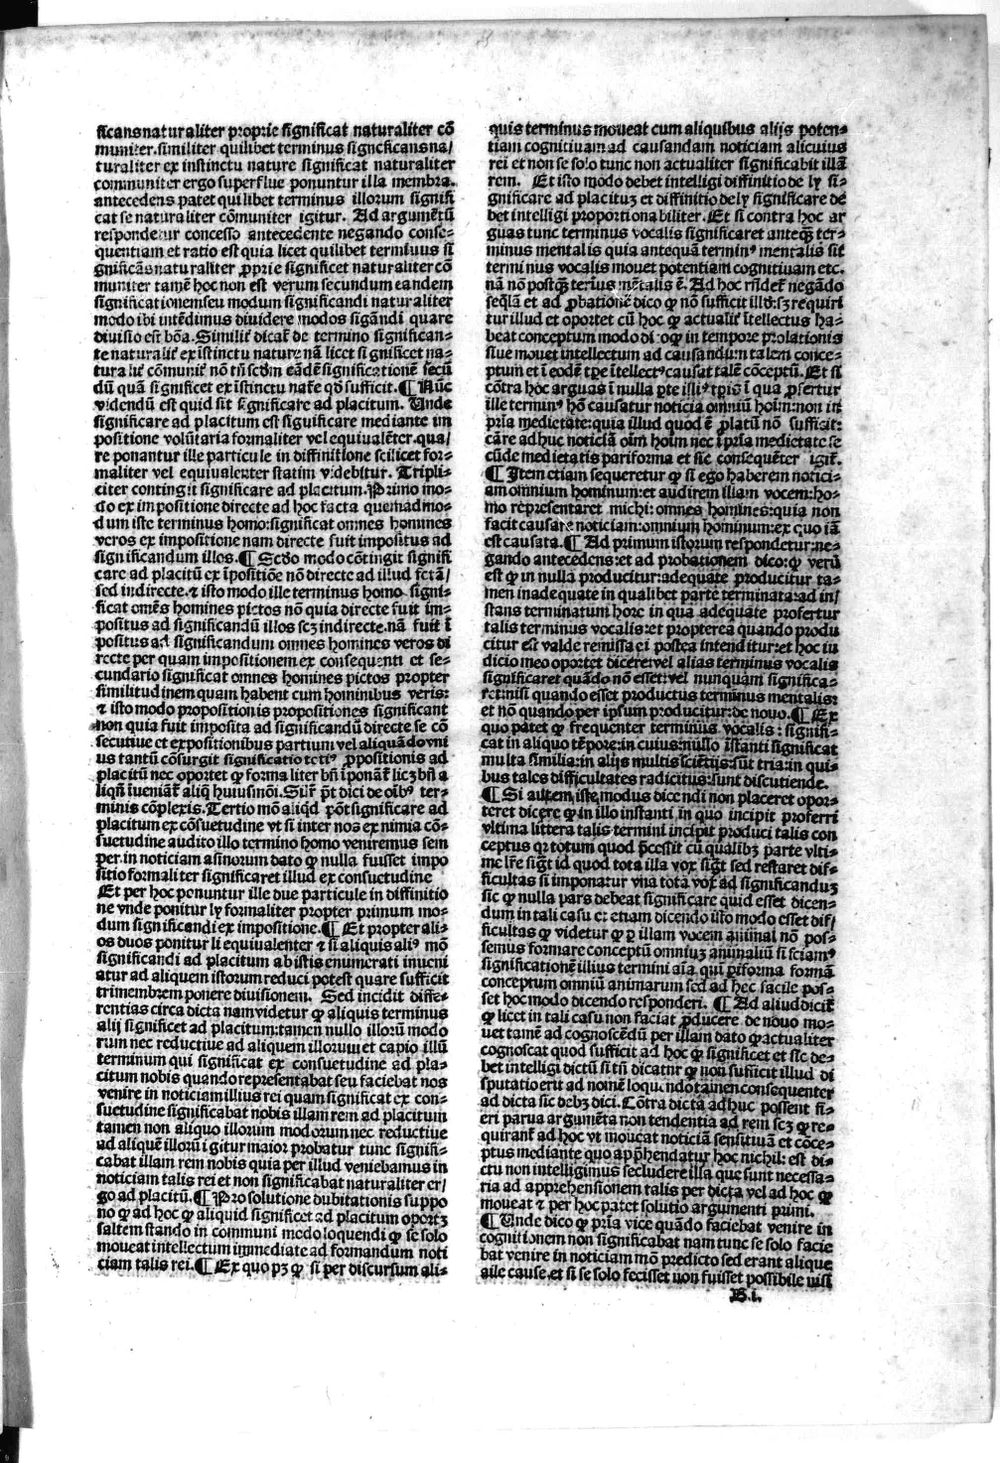 ficans naturaliter proprie significat naturaliter cō
muniter. similiter quilibet terminus signcficans na/
turaliter ex instinctu nature significat naturaliter
communiter ergo superflue ponuntur illa membra.
antecedens patet quilibet terminus illorum signifi
cat se naturaliter cōmuniter igitur. Ad argumētū
respondetur concesso antecedente negando conse-
quentiam et ratio est quia licet quilibet terminus si
gnificās naturaliter ꝓprie significet naturaliter cō
muniter tamē hoc non est verum secundum eandem
significationem seu modum significandi naturaliter
modo ibi intēdimus diuidere modos sigādi quare
diuisio est bōa. Similiť dicať de termino significan-
te naturaliť ex īstinctu nature nā licet significet na-
turaliť cōmuniť nō tñ scđm eādē significationē secū
dū quā significet ex īstinctu natē qđ sufficit. ¶ Nūc
videndū est quid sit significare ad placitum. Unde
significare ad placitum est siguificare mediante im
positione volūtaria formaliter vel equiualēter. qua/
re ponantur ille particule in diffinitione scilicet for-
maliter vel equiualenter statim videbitur. Tripli-
citer contingit significare ad placitum. Primo mo-
do ex impositione directe ad hoc facta quemadmo-
dum iste terminus homo: significat omnes homines
veros ex impositione nam directe fuit impositus ad
significandum illos. ¶ Scđo modo cōtingit signifi
care ad placitū ex īpositiōe nō directe ad illud fctā/
sed indirecte. ⁊ isto modo ille terminus homo signi-
ficat omēs homines pictos nō quia directe fuit im-
positus ad significandū illos scꝫ indirecte. nā fuit ī
positus ad significandum omnes homines veros di
recte per quam impositionem ex consequenti et se-
cundario significat omnes homines pictos propter
similitudinem quam habent cum hominibus veris:
⁊ isto modo propositionis propositiones significant
non quia fuit imposita ad significandū directe se cō
secutiue et expositionibus partium vel aliquādo vni
us tantū cōsurgit significatio totiꝰ ꝓpositionis ad
placitū nec oportet ꝙ formaliter bñ īponāť licꝫ bñ a
liqñ īueniať aliq̄ huiusmōi. Sil'r p̄t dici de oībꝰ ter-
minis cōplexis. Tertio mō aliqđ pōt significare ad
placitum ex cōsuetudine vt si inter nos ex nimia cō-
suetudine audito illo termino homo veniremus sem
per in noticiam asinorum dato ꝙ nulla fuisset impo
sitio formaliter significaret illud ex consuetudine
Et per hoc ponuntur ille due particule in diffinitio
ne vnde ponitur ly formaliter propter primum mo-
dum significandi ex impositione. ¶ Et propter ali-
os duos ponitur li equiualenter ⁊ si aliquis aliꝰ mō
significandi ad placitum ab istis enumerati inueni
atur ad aliquem istorum reduci potest quare sufficit
trimembrem ponere diuisionem. Sed incidit diffe-
rentias circa dicta nam videtur ꝙ aliquis terminus
alij significet ad placitum: tamen nullo illorū modo
rum nec reductiue ad aliquem illorum et capio illū
terminum qui significat ex consuetudine ad pla-
citum nobis quando representabat seu faciebat nos
venire in noticiam illius rei quam significat ex con-
suetudine significabat nobis illam rem ad placitum
tamen non aliquo illorum modorum nec reductiue
ad aliquē illorū igitur maior probatur tunc signifi-
cabat illam rem nobis quia per illud veniebamus in
noticiam talis rei et non significabat naturaliter er/
go ad placitū. ¶ Pro solutione dubitationis suppo
no ꝙ ad hoc ꝙ aliquid significet ad placitum oportꝫ
saltem stando in communi modo loquendi ꝙ se solo
moueat intellectum immediate ad formandum noti
ciam talis rei. ¶ Ex quo pꝫ ꝙ si per discursum ali-
quis terminus moueat cum aliquibus alijs poten-
tiam cognitiuam ad causandam noticiam alicuius
rei et non se solo tunc non actualiter significabit illā
rem. Et isto modo debet intelligi diffinitio de ly si-
gnificare ad placituꝫ et diffinitio de ly significare de
bet intelligi proportionabiliter. Et si contra hoc ar
guas tunc terminus vocalis significaret anteꝙ̄ ter-
minus mentalis quia antequā terminꝰ mentalis sit
terminus vocalis mouet potentiam cognitiuam etc.
nā nō postꝙ̄ terīus mētalis ē. Ad hoc rñdeť negādo
seq̄lā et ad ꝓbationē dico ꝙ nō sufficit illđ: sꝫ requiri
tur illud et oportet cū hoc ꝙ actualiť ītellectus ha-
beat conceptum modo di: oꝙ in tempore prolationis
siue mouet intellectum ad causandum talem conce-
ptum et ī eodē tpe ītellectꝰ causat talē cōceptū. Et si
cōtra hoc arguas ī nulla pte illiꝰ tpis ī qua ꝓfertur
ille terminꝰ hō causatur noticia omniū hoīm: non in
pria medietate: quia illud quod ē ꝓlatū nō sufficit:
cāre ad huc noticiā oīm hoīm nec ī pria medietate se
cūde medietatis pariforma et sic consequēter igiť.
¶ Item etiam sequeretur ꝙ si ego haberem notici-
am omnium hominum: et audirem illam vocem: ho-
mo representaret michi: omnes homines: quia non
facit causare noticiam: omnium hominum: ex quo iā
est causata. ¶ Ad primum istorum respondetur: ne-
gando antecedens: et ad probationem dico: ꝙ verū
est ꝙ in nulla producitur: adequate producitur ta-
men inadequate in qualibet parte terminata: ad in/
stans terminatum hore in qua adequate profertur
talis terminus vocalis: et propterea quando produ
citur est valde remissa ei postea intenditur: et hoc iu
dicio meo oportet dicere: vel alias terminus vocalis
significaret quādo nō esset: vel nunquam significa-
ret: nisi quando esset productus terminus mentalis:
et nō quando per ipsum producitur: de nouo. ¶ Ex
quo patet ꝙ frequenter terminus vocalis: signifi-
cat in aliquo tēpore: in cuius: nullo īstanti significat
multa similia: in alijs multis sciētijs: sūt tria: in qui-
bus tales difficultates radicitus: sunt discutiende.
¶ Si autem iste modus dicendi non placeret opor-
teret dicere ꝙ in illo instanti in quo incipit proferri
vltima littera talis termini incipit produci talis con
ceptus qr totum quod p̄cessit cū qualibꝫ parte vlti-
me lr̄e sigt id quod tota illa vox sigt sed restaret dif-
ficultas si imponatur vna tota vox ad significanduꝫ
sic ꝙ nulla pars debeat significare quid esset dicen-
dum in tali casu et etiam dicendo isto modo esset dif/
ficultas ꝙ videtur ꝙ ꝑ illam vocem animal nō pos-
semus formare conceptū omniuꝫ animaliū si sciamꝰ
significationē illius termini aīa qui ꝑiforma formā
conceptum omniū animarum sed ad hec facile pos-
set hoc modo dicendo responderi. ¶ Ad aliud diciť
ꝙ licet in tali casu non faciat ꝓducere de nouo mo-
uet tamē ad cognoscēdū per illam dato ꝙ actualiter
cognoscat quod sufficit ad hoc ꝙ significet et sic de-
bet intelligi dictū si tñ dicatur ꝙ non sufficit illud di
sputatio erit ad nomē loquēndo tamen consequenter
ad dicta sic debꝫ dici. Cōtra dicta adhuc possent fi-
eri parua argumēta non tendentia ad rem scꝫ ꝙ re-
quiranť ad hoc vt moueat noticiā sensitiuā et cōce-
ptus mediante quo apꝫhendatur hoc nichil: est di-
ctu non intelligimus secludere illa que sunt necessa-
ria ad apprehensionem talis per dicta vel ad hoc ꝙ
moueat ⁊ per hoc patet solutio argumenti primi.
¶ Unde dico ꝙ pria vice quādo faciebat venire in
cognitionem non significabat nam tunc se solo facie
bat venire in noticiam mō predicto sed erant alique
alie cause. et si se solo fecisset non fuisset possibile nisi
B.i.